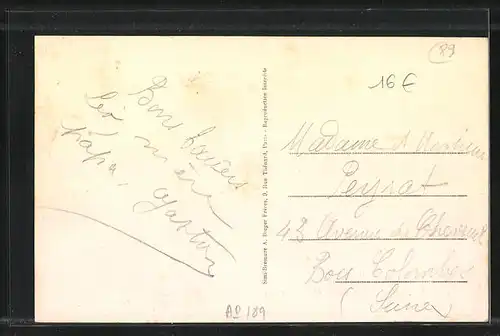 89
16 €
Bons baisers
Léo, mère
papa, Gaston
Similibromure A. Breger Frères, 9, Rue Thénard, Paris - Reproduction Interdite
Madame & Monsieur
Peyrat
43 Avenue de
Bois Colombes
(Seine)
AD/89